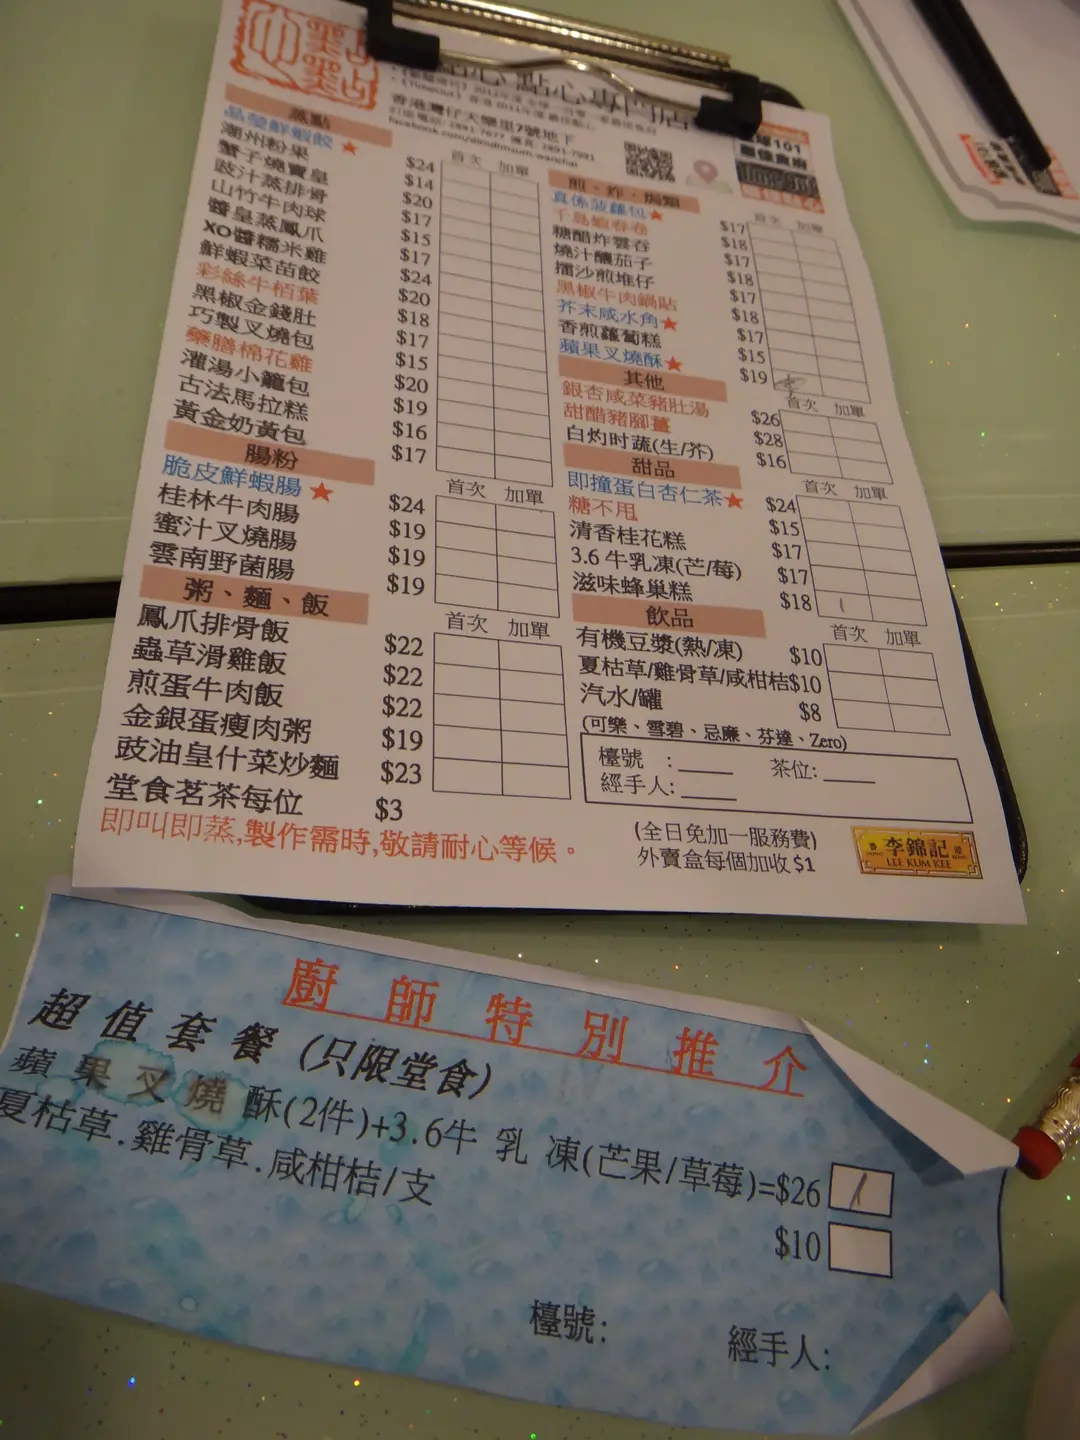 點點心點心專門店
香港灣仔天樂里7號地下
facebook.com/dimdimsum.wanchai
蒸點 首次 加單
晶瑩鮮蝦餃★ $24
潮州粉果 $14
蟹子燒賣皇 $20
豉汁蒸排骨 $17
山竹牛肉球 $15
醬皇蒸鳳爪 $17
XO醬糯米雞 $24
鮮蝦菜苗餃 $20
彩絲牛栢葉 $18
黑椒金錢肚 $17
巧製叉燒包 $15
藥膳棉花雞 $20
灌湯小籠包 $19
古法馬拉糕 $16
黃金奶黃包 $17
腸粉 首次 加單
脆皮鮮蝦腸★ $24
桂林牛肉腸 $19
蜜汁叉燒腸 $19
雲南野菌腸 $19
粥、麵、飯 首次 加單
鳳爪排骨飯 $22
蟲草滑雞飯 $22
煎蛋牛肉飯 $22
金銀蛋瘦肉粥 $19
豉油皇什菜炒麵 $23
堂食茗茶每位 $3
即叫即蒸,製作需時,敬請耐心等候。
煎、炸、焗類 首次 加單
真係菠蘿包★ $17
千島蝦春卷 $18
糖醋炸雲吞 $17
燒汁釀茄子 $18
擂沙煎堆仔 $17
黑椒牛肉鍋貼 $18
芥末咸水角★ $17
香煎蘿蔔糕 $15
蘋果叉燒酥★ $19
其他 首次 加單
銀杏咸菜豬肚湯 $26
甜醋豬腳薑 $28
白灼时蔬(生/芥) $16
甜品 首次 加單
即撞蛋白杏仁茶★ $24
糖不甩 $15
清香桂花糕 $17
3.6 牛乳凍(芒/莓) $17
滋味蜂巢糕 $18
飲品 首次 加單
有機豆漿(熱/凍) $10
夏枯草/雞骨草/咸柑桔$10
汽水/罐 $8
(可樂、雪碧、忌廉、芬達、Zero)
檯號 :____ 茶位:____
經手人:____
(全日免加一服務費)
外賣盒每個加收 $1
李錦記
LEE KUM KEE
廚師特別推介
超值套餐(只限堂食)
蘋果叉燒酥(2件)+3.6牛乳凍(芒果/草莓)=$26
夏枯草.雞骨草.咸柑桔/支 $10
檯號: 經手人: